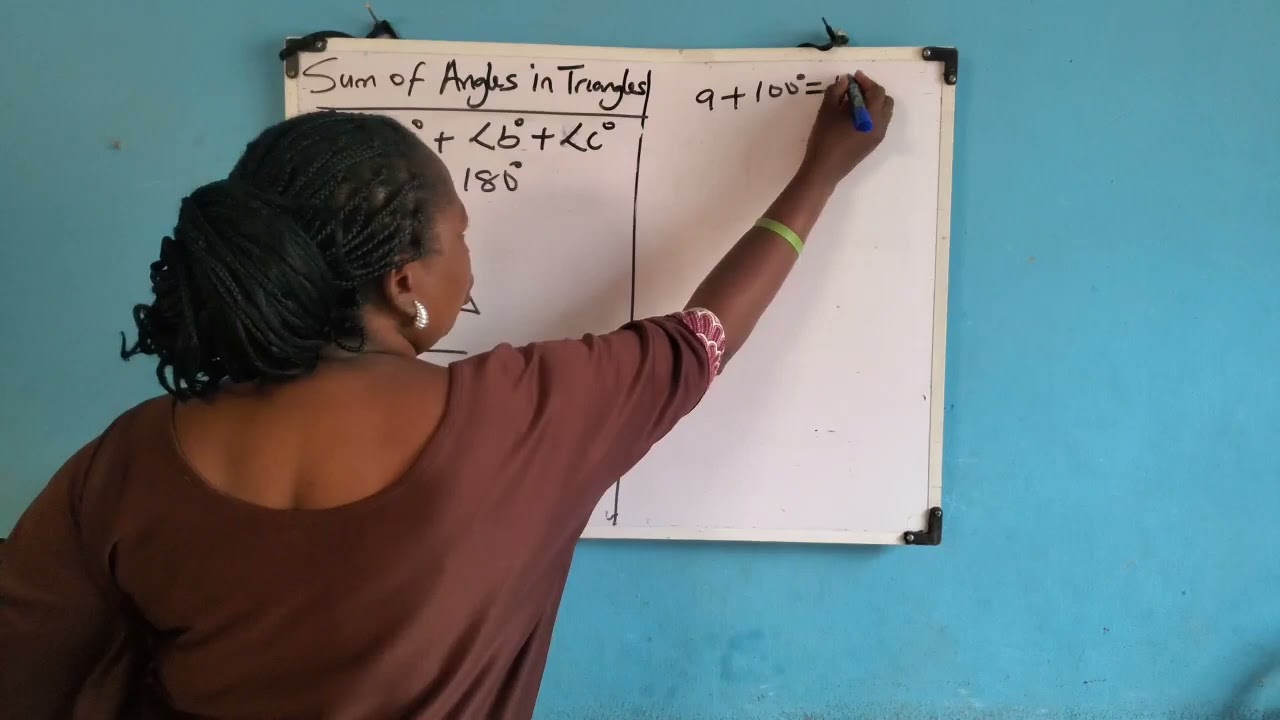 Sum of Angles in Triangles
° + <b° + <c°
180°
a + 100° =